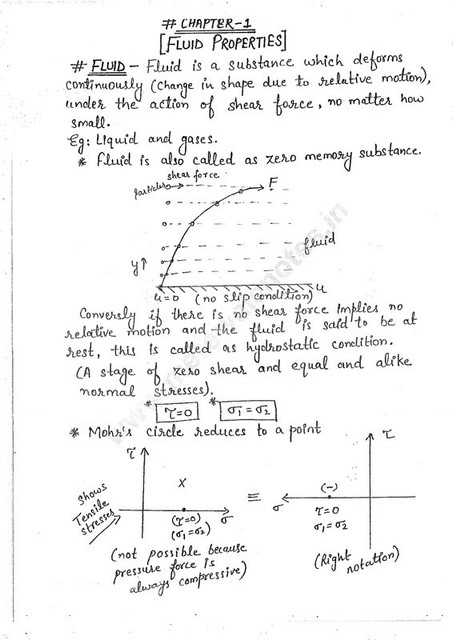 # CHAPTER-1
[FLUID PROPERTIES]
# FLUID - Fluid is a substance which deforms
continuously (change in shape due to relative motion),
under the action of shear force, no matter how
small.
Eg: Liquid and gases.
* Fluid is also called as zero memory substance.
shear force
particles
F
fluid
y↑
u=0 (no slip condition) u
Conversly if there is no shear force implies no
relative motion and the fluid is said to be at
rest, this is called as hydrostatic condition.
(A stage of zero shear and equal and alike
normal stresses).
* τ=0 * σ1 = σ2
* Mohr's circle reduces to a point
τ
x
Shows
Tensile
stresses
(τ=0) σ
(σ1=σ2)
(not possible because
pressure force is
always compressive)
≡
τ
(-)
σ
τ=0
σ1=σ2
(Right
notation)